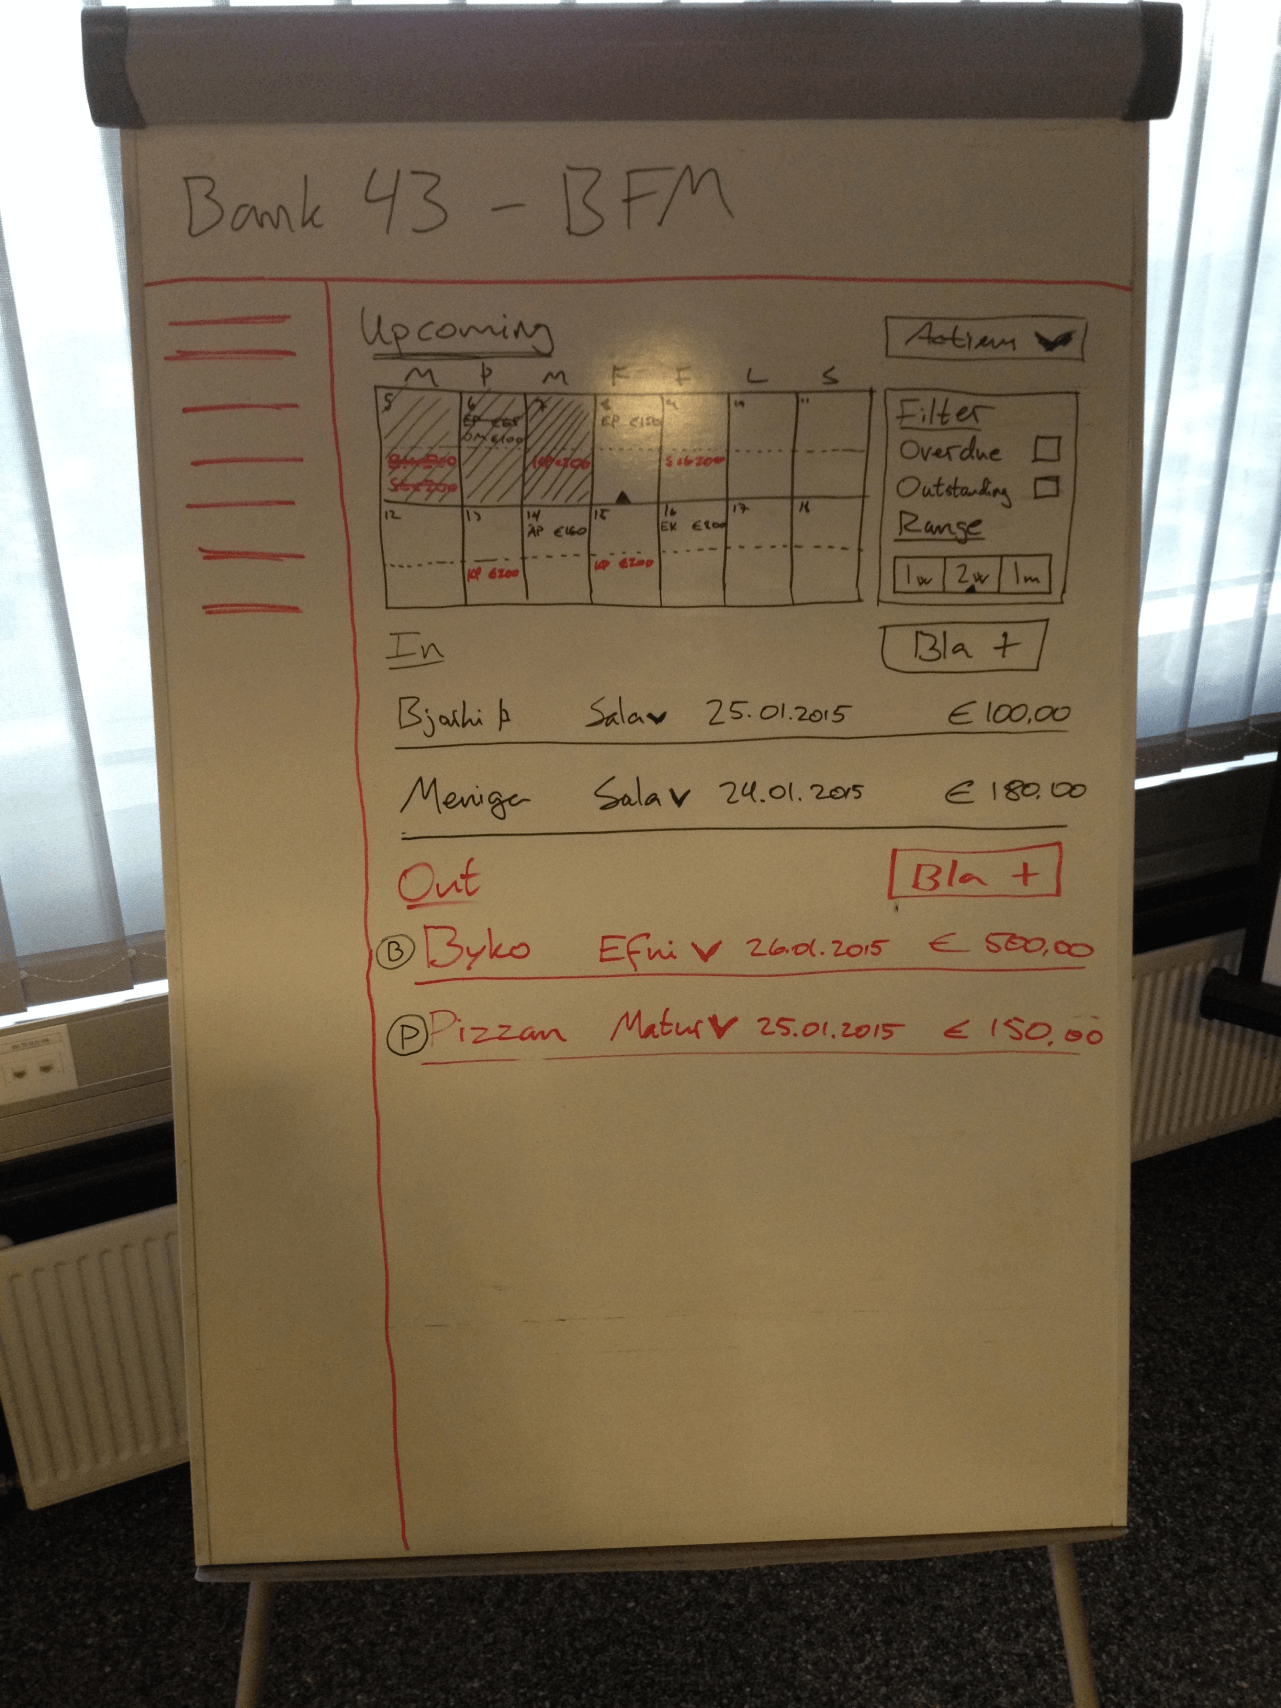 Bank 43 - BFM
Upcoming
Action
M Þ M F F L S
5 6 7 8 9 10 11
EP €65 EP €150
DM €100
KP €200
12 13 14 15 16 17 18
AP €160 EK €800
KP €200 KP €200
Filter
Overdue
Outstanding
Range
1w 2w 1m
In Bla +
Bjarki Þ Sala 25.01.2015 € 100,00
Meniga Sala 24.01.2015 € 180,00
Out Bla +
B Byko Efni 26.01.2015 € 500,00
P Pizzan Matur 25.01.2015 € 150,00